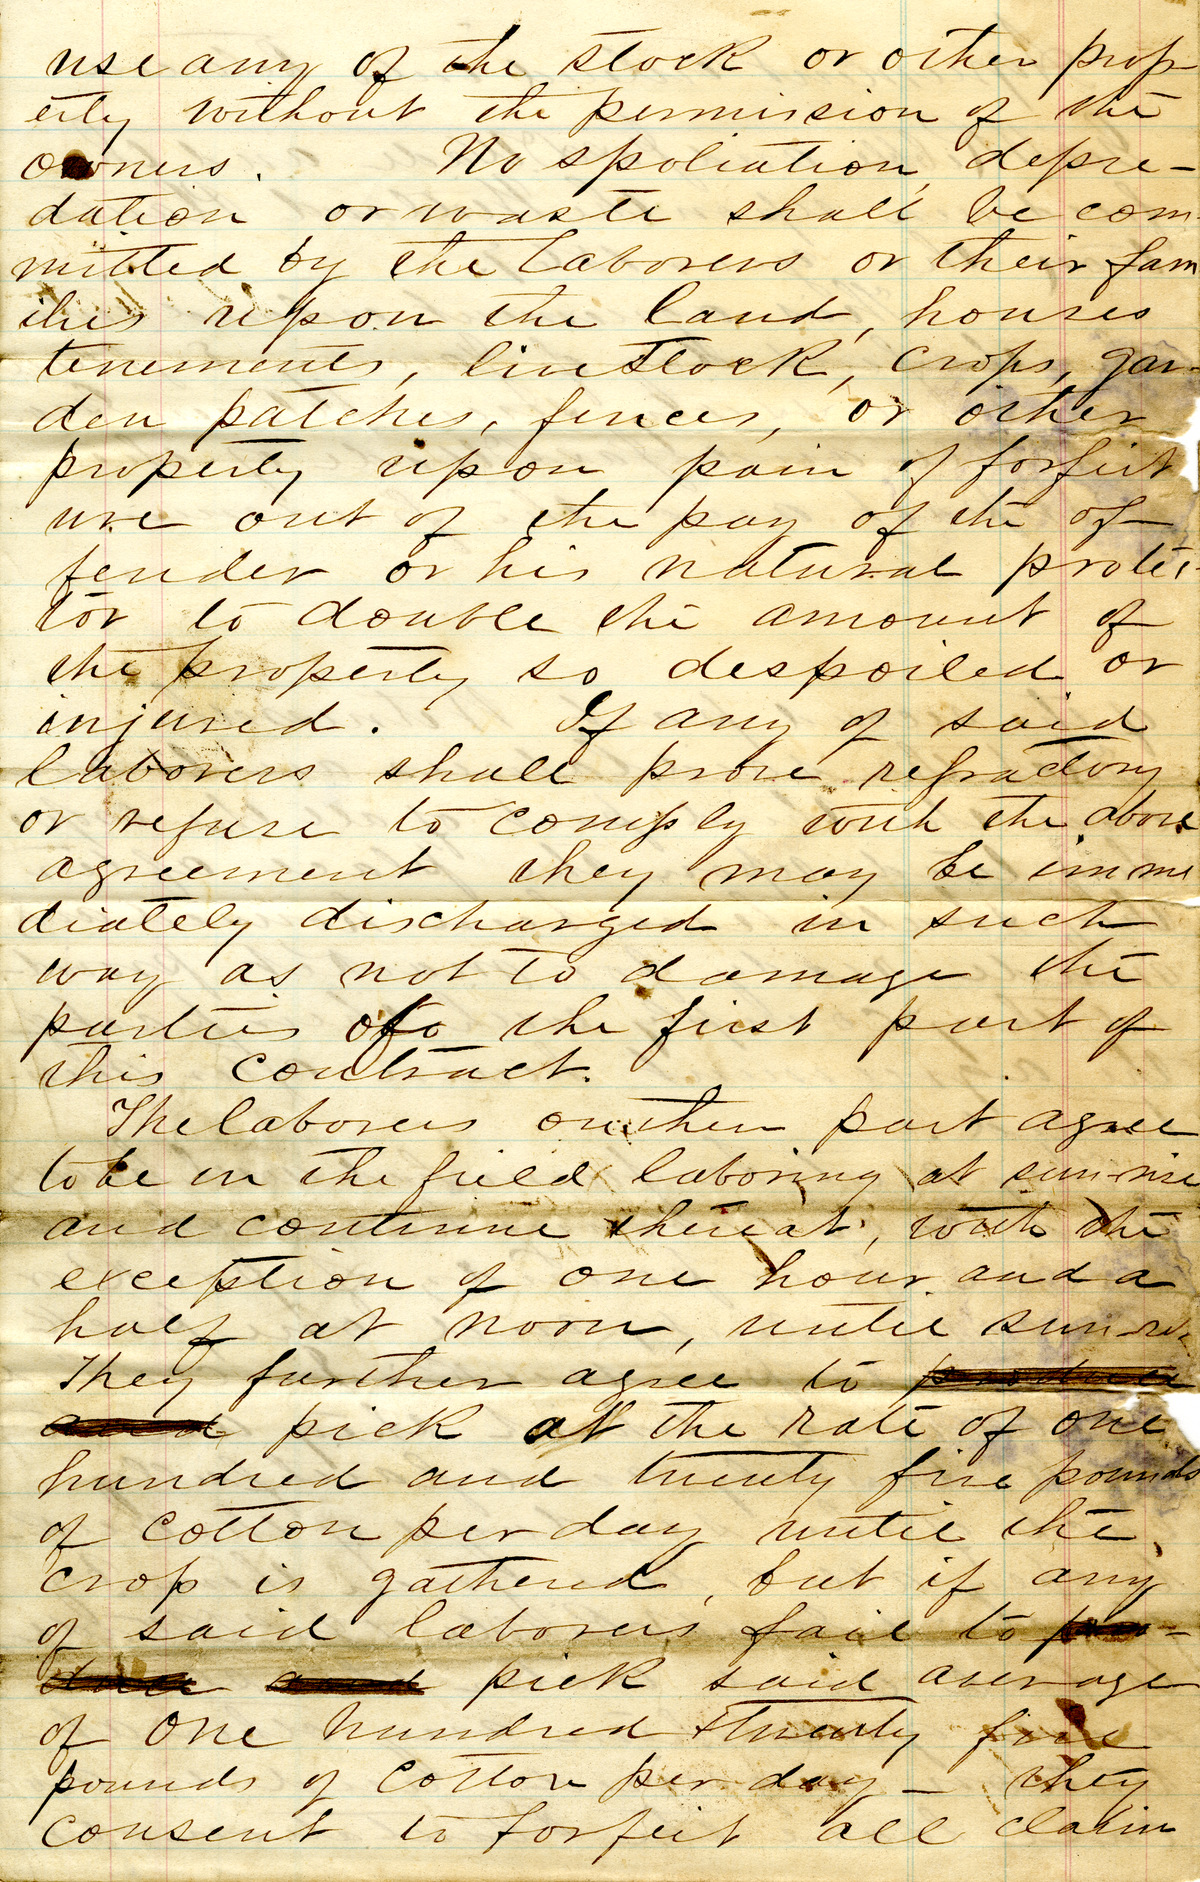 use any of the stock or other prop-
erty without the permission of the
owners. No spoliation, depre-
dation or waste shall be com-
mitted by the laborers or their fam
ilies upon the land, houses
tenements, live stock, crops, gar-
den patches, fences, or other
property upon pain of forfeit
ure out of the pay of the of-
fender or his natural protec-
tor to double the amount of
the property so despoiled or
injured. If any of said
laborers shall prove refractory
or refuse to comply with the above
agreement they may be imme
diately discharged in such
way as not to damage the
parties of the first part of
this contract.
The laborers on their part agree
to be in the field laboring at sun-rise
and continue thereat, with the
exception of one hour and a
half at noon, until sun-
They further agree to produce
and pick at the rate of one
hundred and twenty five pounds
of cotton per day until the
crop is gathered, but if any
of said laborers fail to pro-
duce and pick said average
of one hundred & twenty five
pounds of cotton per day — they
consent to forfeit all claim